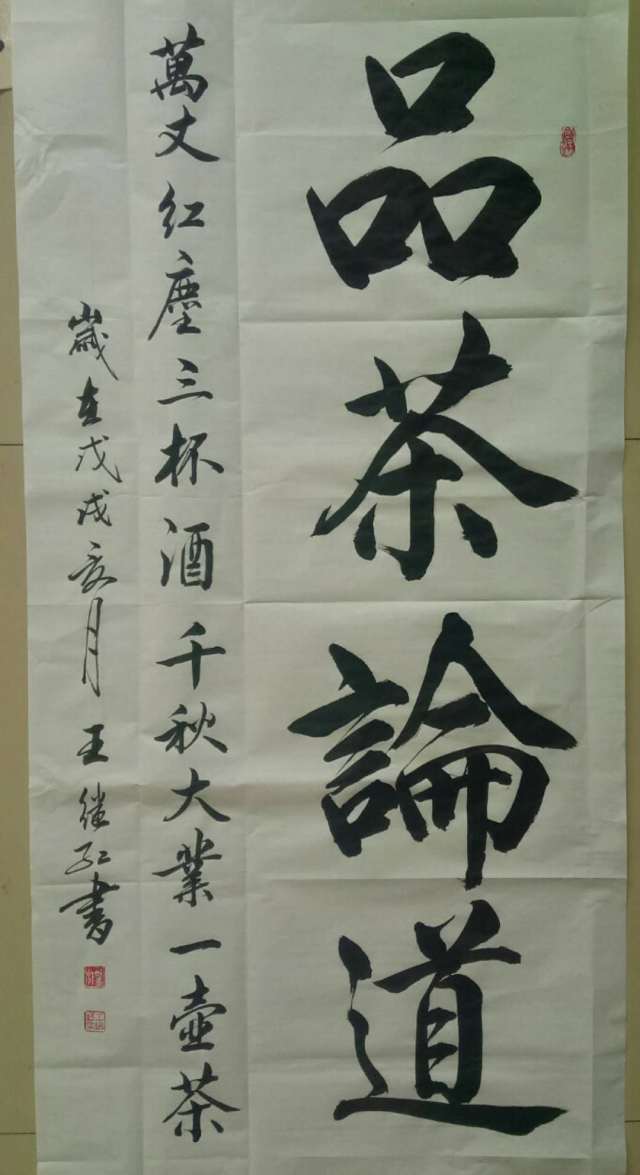 品茶論道
萬丈红塵三杯酒千秋大業一壺茶
歲在戊戌亥月王继红書